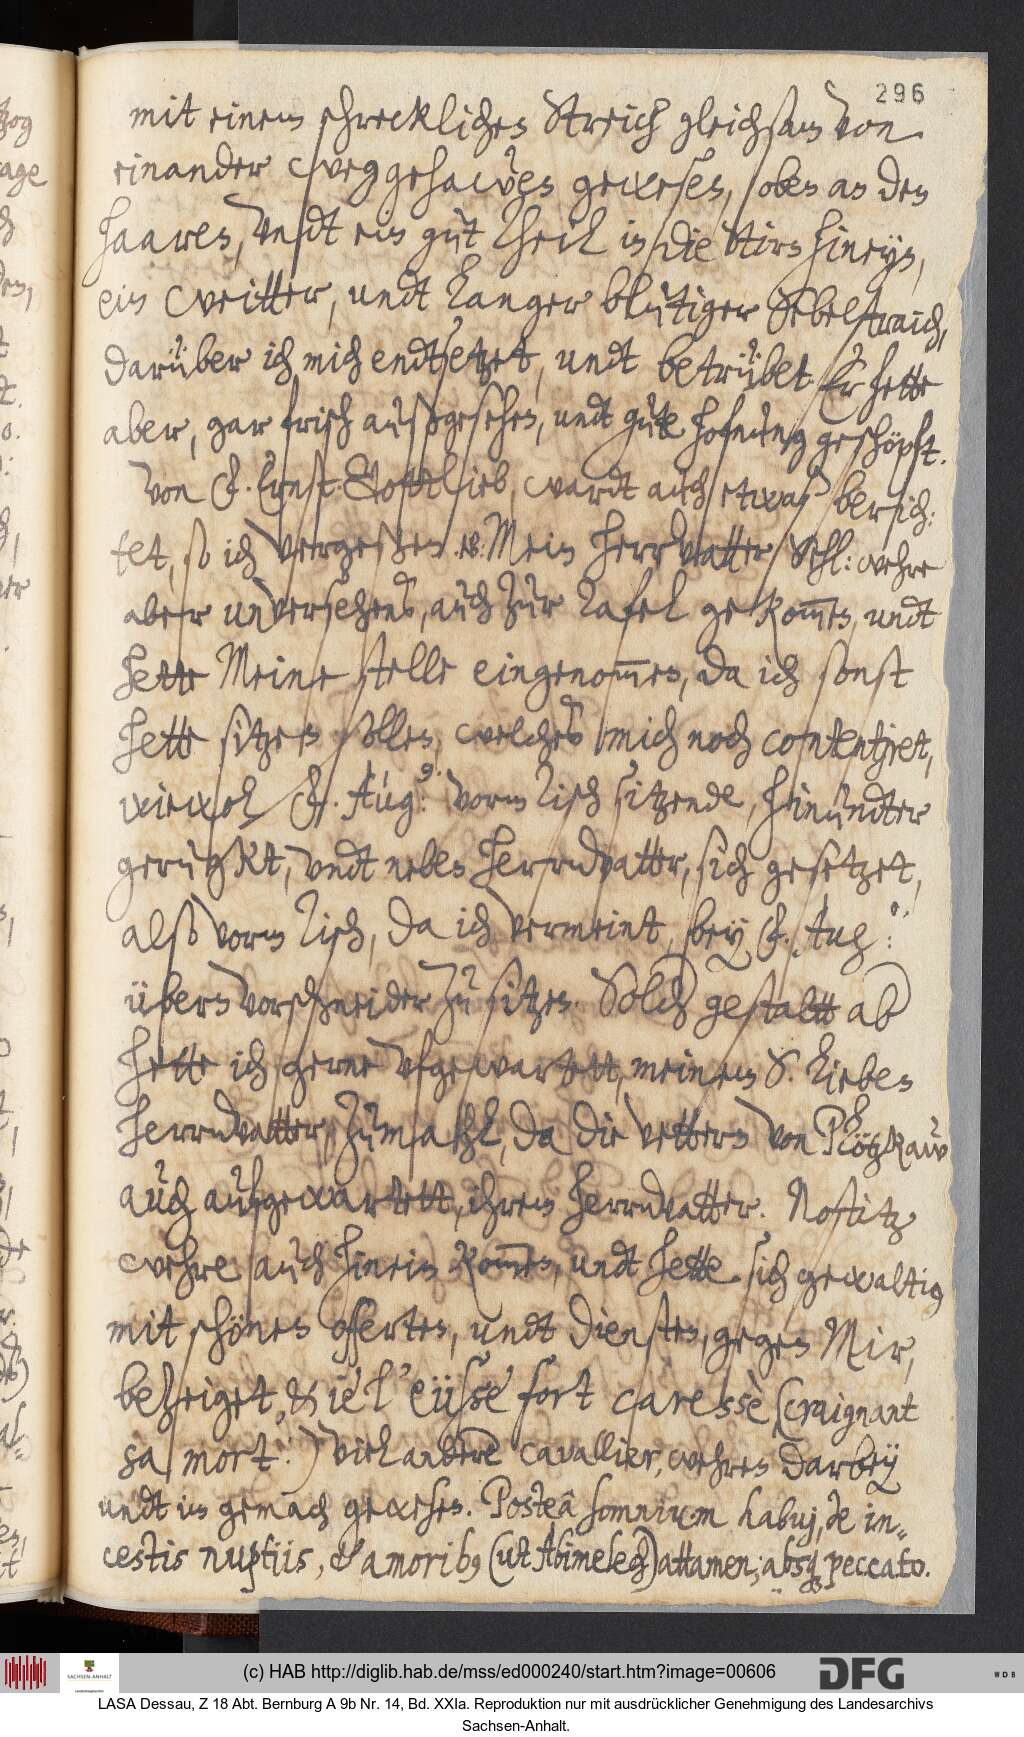 296
mit einem schrecklichen Streich gleichsam von
einander weggehawen gewesen, oben an den
haaren, undt ein gut theil in die stirn hineyn,
ein weitter, undt langer blutiger Sebelstraich,
darüber ich mich endtsetzet, undt betrübet. Er hette
aber, gar frisch außgesehen, undt gute hofnung geschöpft.
Von F. Ernst Gottlieb, wardt auch etwaß berich:
tet, so ich vergeßen. NB: Mein herrvatter Sehl: wehre
aber unversehens, auch zur Tafel gekom̅en, undt
hette Meine stelle eingenom̅en, da ich sonst
hette sitzen sollen, welches mich noch contentiret,
wiewol F. Aug: vorm Tisch sitzende, hinundter
geruckt, undt neben herrnvatter, sich gesetzet,
alß vorm Tisch, da ich vermeint, bey F. Aug:
übern vorschneider zu sitzen. Solch gestaltt ab
hette ich gerne ufgewartett, meinem S. lieben
herrnvatter, zumahl, da die vettern von Plötzkaw
auch aufgewartett, ihrem herrnvatter. Nostitz
wehre auch hinein kom̅en, undt hette sich gewaltig
mit schönen offerten, undt diensten, gegen Mir,
bezeiget, & ie l'eüsse fort caressè (craignant
sa mort:) viel andere cavallier, wehren darbey
undt im gemach gewesen. Posteâ somnium habuj, de in-
cestis nuptiis, & amoribus (ut Abimelech) attamen; absque peccato.
(c) HAB http://diglib.hab.de/mss/ed000240/start.htm?image=00606
SACHSEN-ANHALT
DFG
WDB
LASA Dessau, Z 18 Abt. Bernburg A 9b Nr. 14, Bd. XXIa. Reproduktion nur mit ausdrücklicher Genehmigung des Landesarchivs
Sachsen-Anhalt.